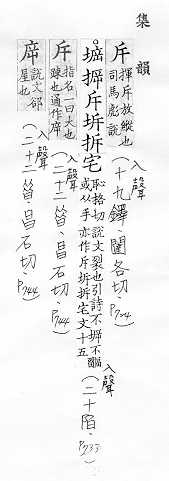 集韻
斥 揮斥放縱也司馬彪說 入聲(十九鐸·闥各切·P724)
。㙤㨹斥坼拆宅 恥挌切說文裂也引詩不㙤不疈或从手亦作斥坼拆宅文十五 入聲(二十陌·P735)
斥 指名一曰大也踈也通作㡿 入聲(二十二㫺·昌石切·P744)
㡿 說文郤屋也 入聲(二十二㫺·昌石切·P744)